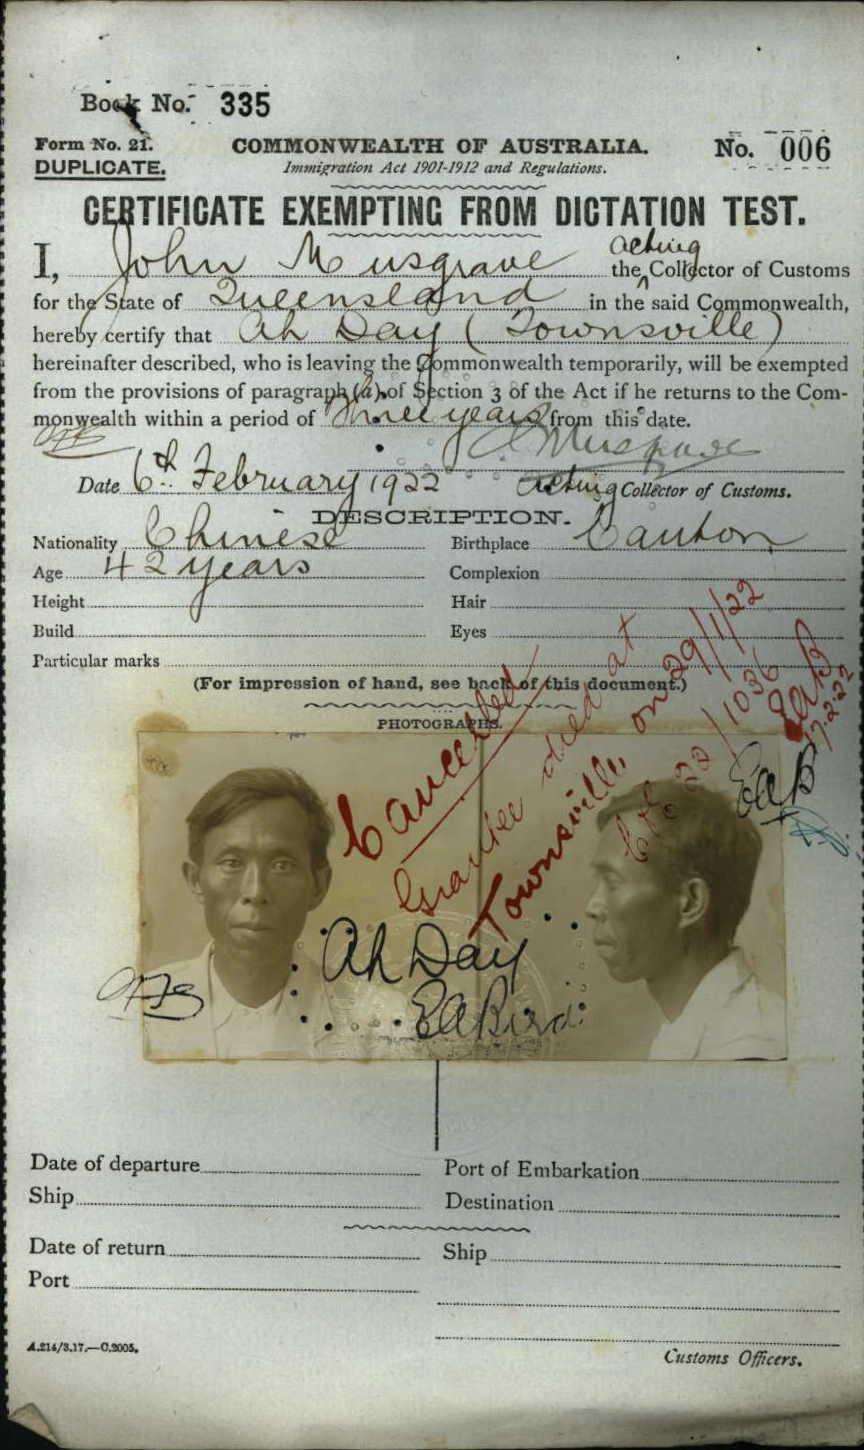 Book No. 335
Form No. 21.
DUPLICATE.
COMMONWEALTH OF AUSTRALIA.
Immigration Act 1901-1912 and Regulations.
No. 006
CERTIFICATE EXEMPTING FROM DICTATION TEST.
I, John Musgrave the acting Collector of Customs
for the State of Queensland in the said Commonwealth,
hereby certify that Ah Day (Townsville)
hereinafter described, who is leaving the Commonwealth temporarily, will be exempted
from the provisions of paragraph (a) of Section 3 of the Act if he returns to the Com-
monwealth within a period of three years from this date.
J Musgrave
Date 6th February 1922 acting Collector of Customs.
DESCRIPTION.
Nationality Chinese Birthplace Canton
Age 42 years Complexion
Height Hair
Build Eyes
Particular marks
(For impression of hand, see back of this document.)
PHOTOGRAPHS.
Cancelled
Grantee died at
Townsville on 29/1/22
22/1036
EAB
17.2.22
EAB
Ah Day
EA Bird
Date of departure Port of Embarkation
Ship Destination
Date of return Ship
Port
A.214/3.17.—C.2005.
Customs Officers.